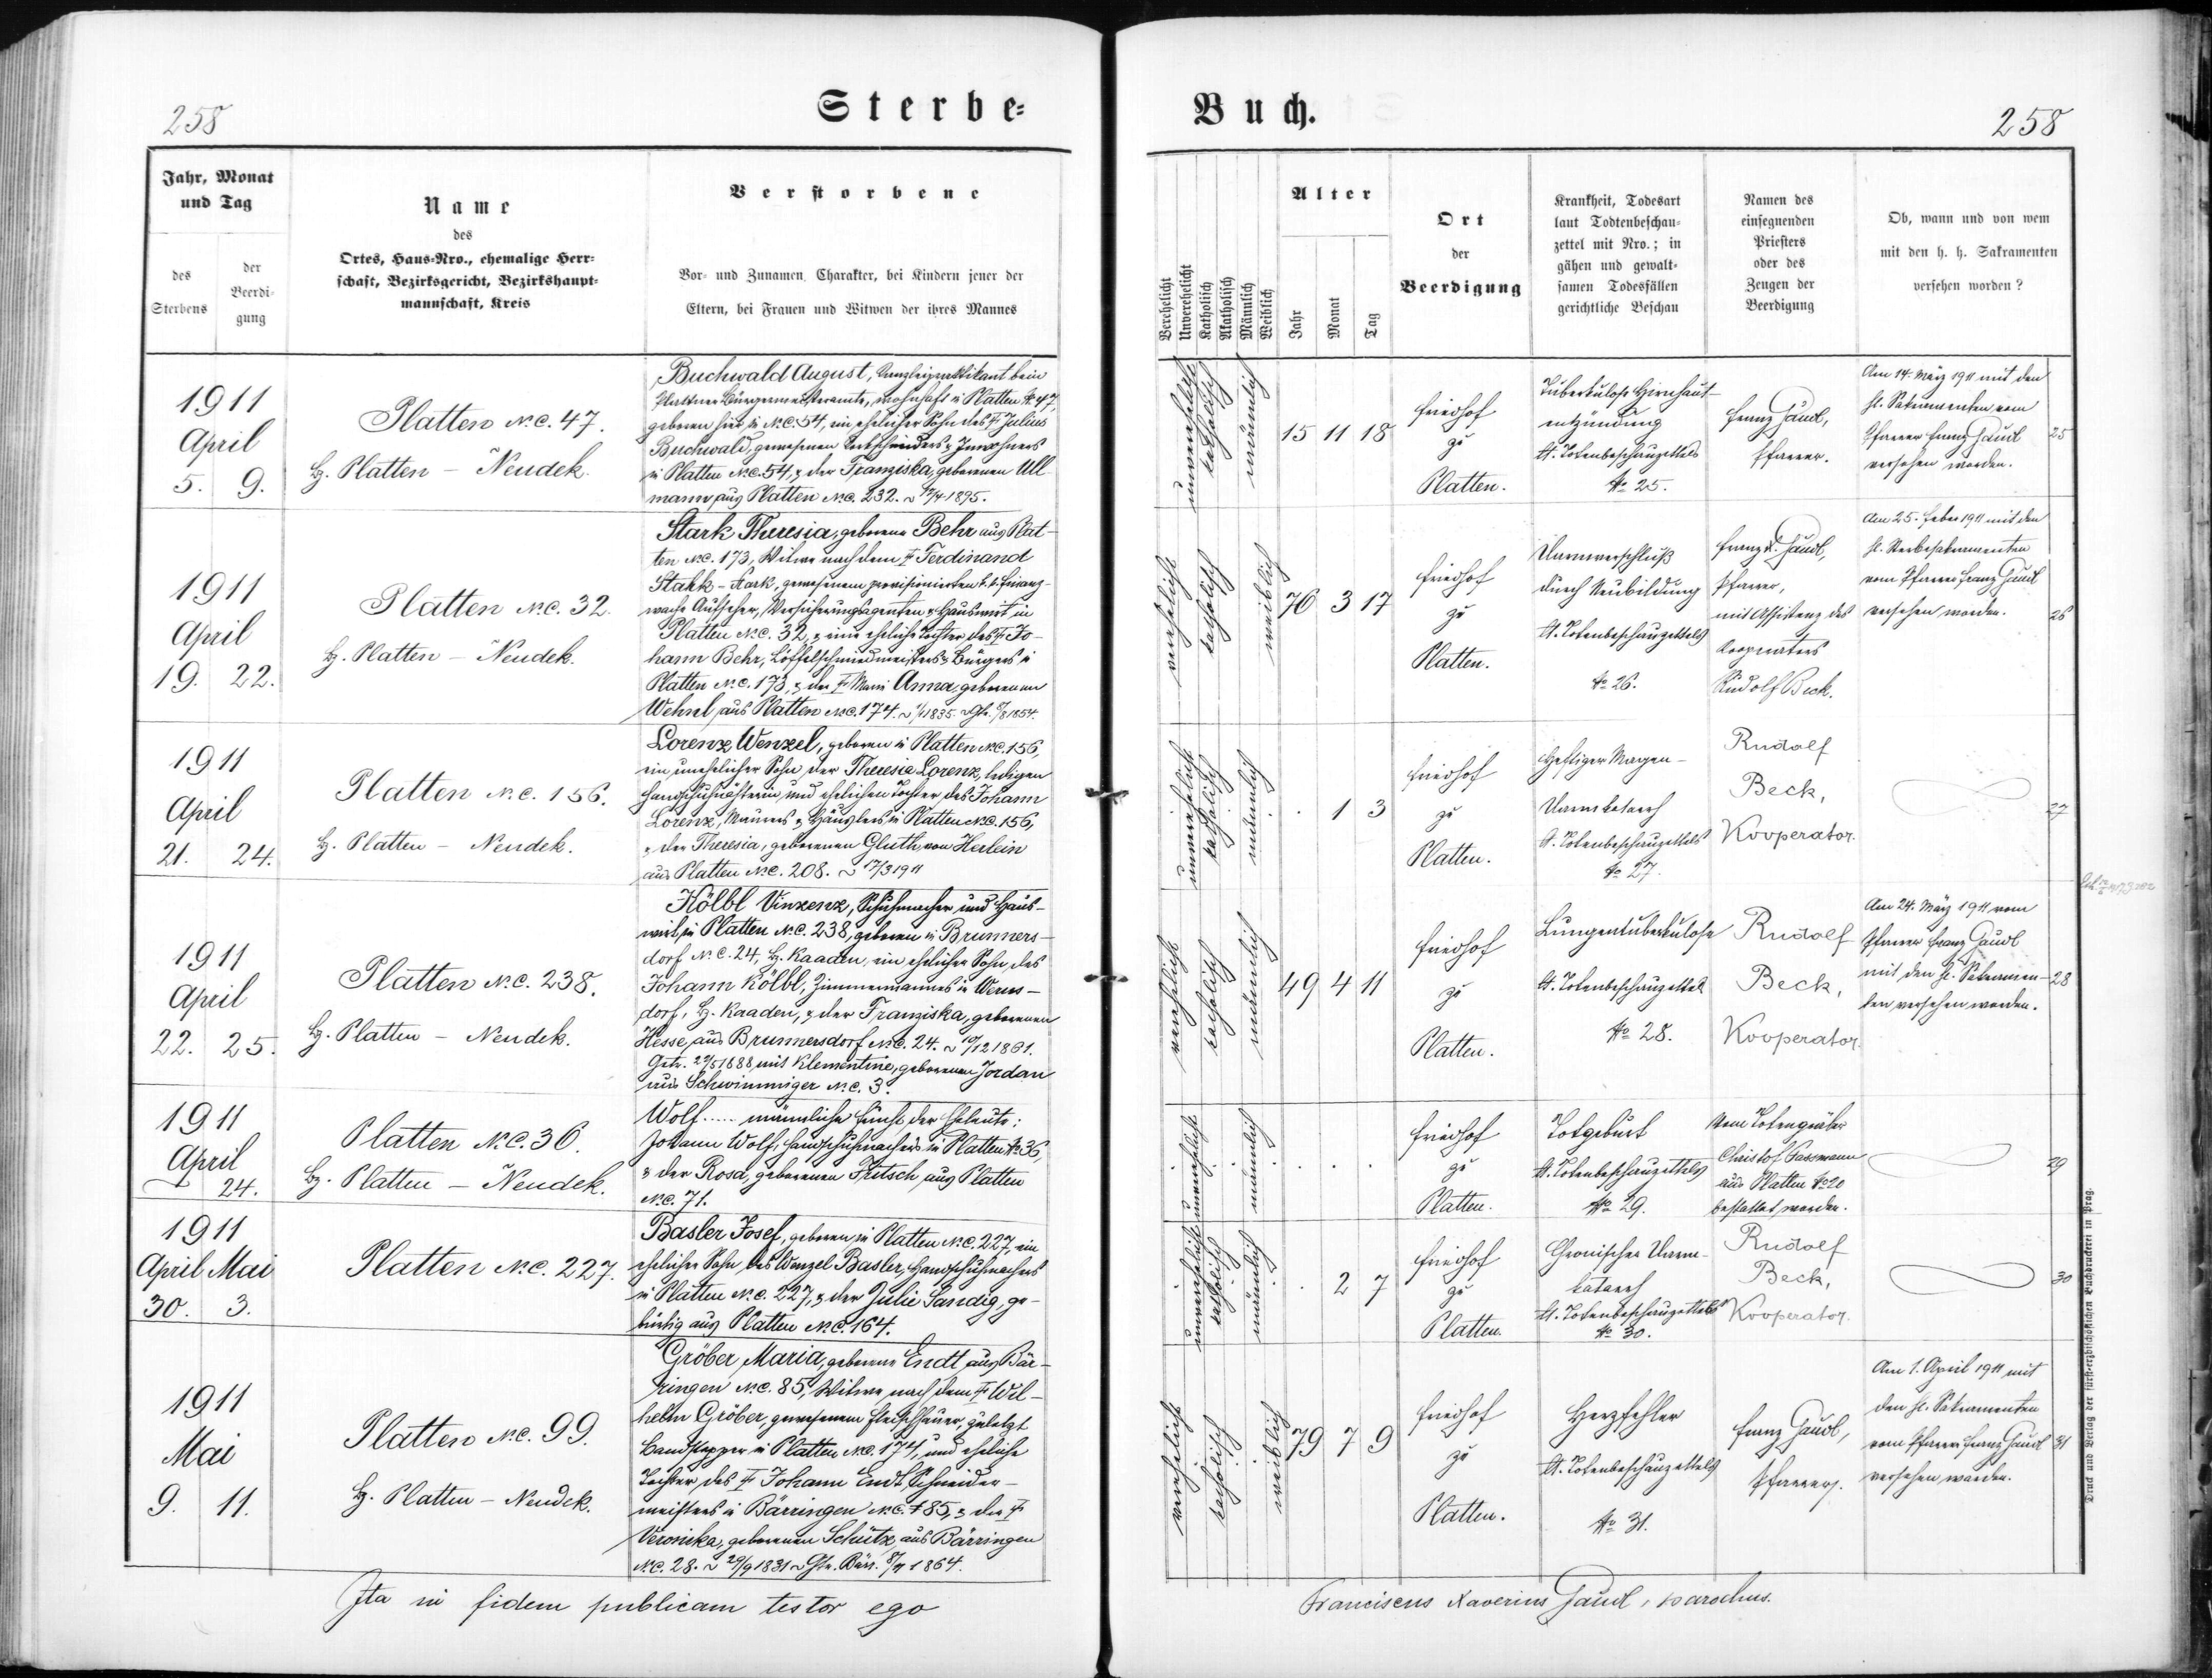 258
Sterbe-
Jahr, Monat
und Tag
des
Sterbens
der
Beerdi-
gung
Name
des
Ortes, Haus-Nro., ehemalige Herr-
schaft, Bezirksgericht, Bezirkshaupt-
mannschaft, Kreis
Verstorbene
Vor- und Zunamen, Charakter, bei Kindern jener der
Eltern, bei Frauen und Witwen der ihres Mannes
1911
April
5. 9.
Platten N.C. 47.
Bz. Platten - Neudek.
Buchwald August, Kanzleipraktikant beim
Plattner Bürgermeisteramte, wohnhaft in Platten № 47,
geboren hier in N.C. 54, ein ehelicher Sohn des † Julius
Buchwald, gewesenen Inwohners
in Platten N.C. 54, & der Franziska, geborenen Ull
mann aus Platten N.C. 232. 17/4 1895.
1911
April
19. 22.
Platten N.C. 32.
Bz. Platten - Neudek.
Stark Theresia, geborene Behr aus Plat-
ten N.C. 173, Witwe nach dem † Ferdinand
Stark, gewesenem provisionierten k.k. Finanz-
wache Aufseher, Versicherungsagenten & Hauswirt in
Platten N.C. 32, & eine eheliche Tochter des † Jo-
hann Behr, Löffelschmiedmeisters & Bürgers in
Platten N.C. 173, & der † Anna, geborenen
Wehrl aus Platten N.C. 174. 1/1 1835.
1911
April
21. 24.
Platten N.C. 156.
Bz. Platten - Neudek.
Lorenz Wenzel, geboren in Platten N.C. 156,
ein unehelicher Sohn der Theresia Lorenz, ledigen
Handschuhnähterin, und ehelichen Tochter des Johann
Lorenz, Maurers & Häuslers in Platten N.C. 156,
& der Theresia, geborenen Gluth von Herlein
aus Platten N.C. 208. 17/3 1911
1911
April
22. 25.
Platten N.C. 238.
Bz. Platten - Neudek.
Kölbl Vinzenz, Schuhmacher und Haus-
wirt in Platten N.C. 238, geboren in Brunners-
dorf N.C. 24, Bz. Kaaden, ein ehelicher Sohn des
Johann Kölbl, Zimmermannes in Werns-
dorf, Bz. Kaaden, & der Franziska, geborenen
Hesse aus Brunnersdorf N.C. 24. 1861.
Getr. 1888 mit Klementine, geborenen Jordan
aus Schwimmiger N.C. 3.
1911
April
24.
Platten N.C. 36.
Bz. Platten - Neudek.
Wolf..... männliche Frucht der Eheleute:
Johann Wolf, Handschuhmachers in Platten № 36,
& der Rosa, geborenen Fritsch aus Platten
N.C. 71.
1911
April Mai
30. 3.
Platten N.C. 227.
Basler Josef, geboren in Platten N.C. 227, ein
ehelicher Sohn des Wenzel Basler, Handschuhmachers
in Platten N.C. 227, & der Julie Sandig, ge-
bürtig aus Platten N.C. 164.
1911
Mai
9. 11.
Platten N.C. 99.
Bz. Platten - Neudek.
Gröber Maria, geborene Endt aus Bär-
ringen N.C. 85, Witwe nach dem † Wil-
helm Gröber, gewesenem Fleischhauer, zuletzt
in Platten N.C. 174, und eheliche
Tochter des † Johann Endt, Schneider-
meisters in Bärringen N.C. 85, & der †
Veronika, geborenen Schütz aus Bärringen
N.C. 28. 29/9 1831 Gtr. Bärr. 1864.
Ita in fidem publicam testor ego
Buch.
258
Verehelicht
Unverehelicht
Katholisch
Akatholisch
Männlich
Weiblich
Alter
Jahr
Monat
Tag
Ort
der
Beerdigung
Krankheit, Todesart
laut Todtenbeschau-
zettel mit Nro.; in
gähen und gewalt-
samen Todesfällen
gerichtliche Beschau
Namen des
einsegnenden
Priesters
oder des
Zeugen der
Beerdigung
Ob, wann und von wem
mit den h. h. Sakramenten
versehen worden?
unverehelicht
katholisch
männlich
15 11 18
Friedhof
zu
Platten.
Tuberkulose Hirnhaut-
entzündung
lt. Totenbeschauzettels
№ 25.
Franz Gaudl,
Pfarrer.
Am 14. März 1911 mit den
hl. Sakramenten vom
Pfarrer Franz Gaudl
versehen worden.
25
verehelicht
katholisch
weiblich
76 3 17
Friedhof
zu
Platten.
Darmverschluß
durch Neubildung
lt. Totenbeschauzettels
№ 26.
Franz X. Gaudl,
Pfarrer,
mit Assistenz des
Kooperators
Rudolf Beck.
Am 25. Feber 1911 mit den
hl. Sterbesakramenten
vom Pfarrer Franz Gaudl
versehen worden.
26
unverehelicht
katholisch
männlich
. 1 3
Friedhof
zu
Platten.
Heftiger Magen-
Darmkatarrh
lt. Totenbeschauzettels
№ 27.
Rudolf
Beck,
Kooperator.
27
verehelicht
katholisch
männlich
49 4 11
Friedhof
zu
Platten.
Lungentuberkulose
lt. Totenbeschauzettel
№ 28.
Rudolf
Beck,
Kooperator.
Am 24. März 1911 vom
Pfarrer Franz Gaudl
mit den hl. Sakramen-
ten versehen worden.
28
unverehelicht
männlich
. . .
Friedhof
zu
Platten.
Totgeburt
lt. Totenbeschauzettels
№ 29.
Vom Totengräber
Christof Fassmann
aus Platten № 20
bestattet worden.
29
unverehelicht
katholisch
männlich
. 2 7
Friedhof
zu
Platten.
Chronischer Darm-
katarrh
lt. Totenbeschauzettels
№ 30.
Rudolf
Beck,
Kooperator.
30
verehelicht
katholisch
weiblich
79 7 9
Friedhof
zu
Platten.
Herzfehler
lt. Totenbeschauzettels
№ 31.
Franz Gaudl,
Pfarrer.
Am 1. April 1911 mit
den hl. Sakramenten
vom Pfarrer Franz Gaudl
versehen worden.
31
Franciscus Xaverius Gaudl, parochus.
Druck und Verlag der fürst-erzbischöflichen Buchdruckerei in Prag.